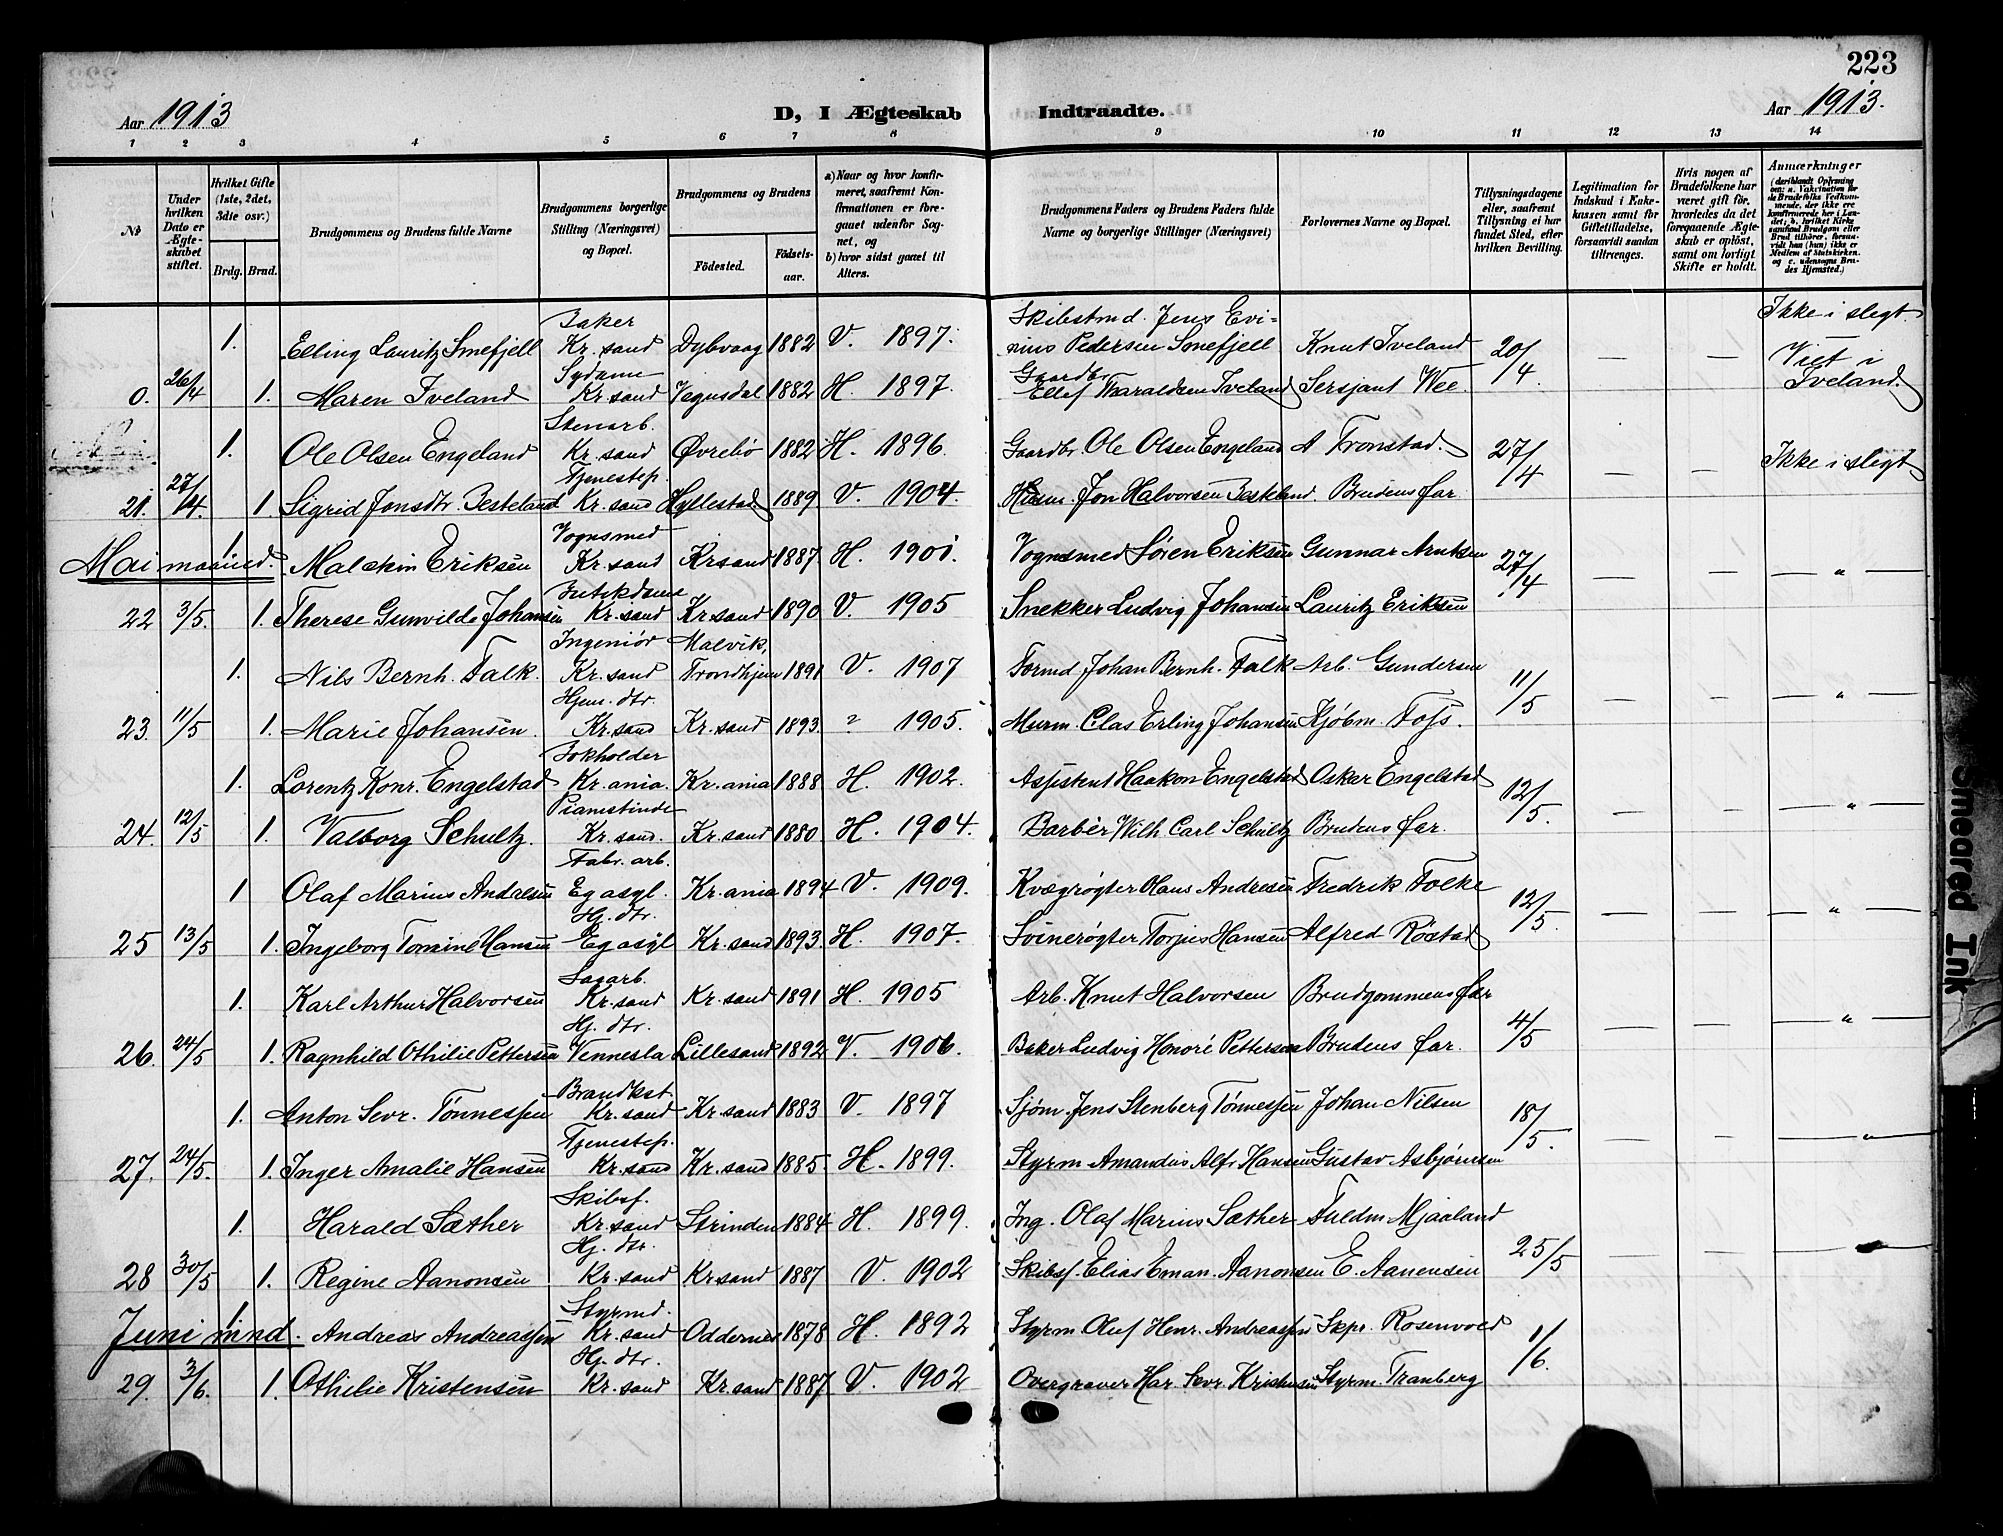 223
Aar 1913
D, I Ægteskab Indtraadte.
Aar 1913.
1 2 3 4 5 6 7 8 9 10 11 12 13 14
No
Under hvilken Dato er Ægteskabet stiftet.
Hvilket Gifte (1ste, 2det, 3die osv.)
Brdg. Brud.
Brudgommens og Brudens fulde Navne
Brudgommens borgerlige Stilling (Næringsvei) og Bopæl.
Brudgommens og Brudens
Fødested. Fødselsaar.
a) Naar og hvor konfirmeret, saafremt Konfirmationen er foregaaet udenfor Sognet, og
b) hvor sidst gaaet til Alters.
Brudgommens Faders og Brudens Faders fulde Navne og borgerlige Stillinger (Næringsvei)
Forlovernes Navne og Bopæl.
Tillysningsdagene eller, saafremt Tillysning ei har fundet Sted, efter hvilken Bevilling.
Legitimation for Indskud i Enkekassen samt for Giftetilladelse, forsaavidt saadan tiltrænges.
Hvis nogen af Brudefolkene har været gift før, hvorledes da det foregaaende Ægteskab er opløst, samt om lovligt Skifte er holdt.
Anmærkninger
(deriblandt Oplysning om: a. Vakcination for de Brudefolks Vedkommende, der ikke ere konfirmerede her i Landet; b. hvilket Kirkesamfund Brudgom eller Brud tilhører, forsaavidt han (hun) ikke er Medlem af Statskirken, og c. udensogns Brudes Hjemsted.)
1. Elling Lauritz Smefjell Baker Kr. sand Dybvaag 1882 V. 1897. Skibstmd. Jens Evinius Pedersen Smefjell Knut Iveland 20/4 — — Ikke i slegt.
0. 26/4 1. Maren Iveland Sydame Kr. sand Vegusdal 1882 H. 1897. Gaardbr. Ellef Taraldsen Iveland Sersjant Wee. Viet i Iveland.
1. Ole Olsen Engeland Stenarb. Kr. sand Øvrebø 1882 H. 1896. Gaardbr. Ole Olsen Engeland A Tronstad. 27/4 — — Ikke i slegt
21. 27/4. 1. Sigrid Jonsdtr. Besteland Tjenestep. Kr. sand Hyllestad 1889. V. 1904. Husm. Jon Halvorsen Besteland Brudens far.
Mai maaned. 1. Malakin Eriksen Vognsmed Kr. sand Kr sand 1887. H. 1901. Vognsmed Søren Eriksen Gunnar Arntsen 27/4. — — "
22 3/5. 1. Therese Gunvilde Johansen Butikdame Kr. sand Kr. sand 1890 V. 1905 Snekker Ludvig Johansen Lauritz Eriksen
1. Nils Bernh. Falk. Ingeniør Kr. sand Malvik, Trondhjem 1891 V. 1907 Formd. Johan Bernh. Falk Arb. Gundersen 11/5 — — "
23. 11/5 1. Marie Johansen. Hjem. dtr. Kr. sand Kr. sand 1893. " 1905. Murm. Clas Erling Johansen Kjøbm. Foss.
1. Lorentz Konr. Engelstad Bokholder Kr. ania. Kr. ania 1888. H. 1902. Assistent Haakon Engelstad Oskar Engelstad 12/5. — — "
24. 12/5 1. Valborg Schultz. Pianistinde Kr. sand. Kr. sand 1880. H. 1904. Barbér Wilh. Carl Schultz Brudens far.
1 Olaf Marius Andresen Fabr. arb. Eg asyl. Kr. ania 1894 V. 1909. Kvægrøgter Hans Andresen Fredrik Folke 12/5. — — "
25 13/5 1. Ingeborg Tomine Hansen Hj. dtr. Eg asyl Kr. sand 1893. H. 1907. Svinerøgter Torjus Hansen Alfred Røstad
1. Karl Arthur Halvorsen Sagarb. Kr. sand Kr. sand 1891 H. 1905 Arb. Knut Halvorsen Brudgommens far 4/5 — — "
26. 24/5 1. Ragnhild Othilie Pettersen Hj. dtr. Vennesla Lillesand 1892 V. 1906. Baker Ludvig Honoré Pettersen Brudens far.
1. Anton Sevr. Tønnessen Brandkst. Kr. sand Kr. sand 1883 V. 1897 Sjøm. Jens Stenberg Tønnessen Johan Nilsen 18/5. — — "
27. 24/5. 1. Inger Amalie Hansen Tjenestep. Kr. sand Kr. sand 1885. H. 1899. Styrm Amandus Alfr Hansen Gustav Asbjørnsen
1. Harald Sæther Skibsf. Kr. sand Strinden 1884 H. 1899. Ing. Olaf Marius Sæther Fuldm Mjaaland 25/5 — — "
28 30/5 1. Regine Aanonsen Hj. dtr. Kr. sand Kr sand 1887 V. 1902 Skibsf. Elias Eman. Aanonsen E. Aanensen
Juni mnd. 1. Andreas Andreassen Styrmd. Kr. sand Oddernes 1878 H. 1892 Styrm Oluf Henr. Andreassen Skpr. Rosenvold 1/6.
29. 3/6. 1. Othilie Kristensen Hj. dtr. Kr. sand Kr. sand 1887 V. 1902 Overgraver Har. Sevr. Kristensen Styrm. Tranberg
Smeared Ink